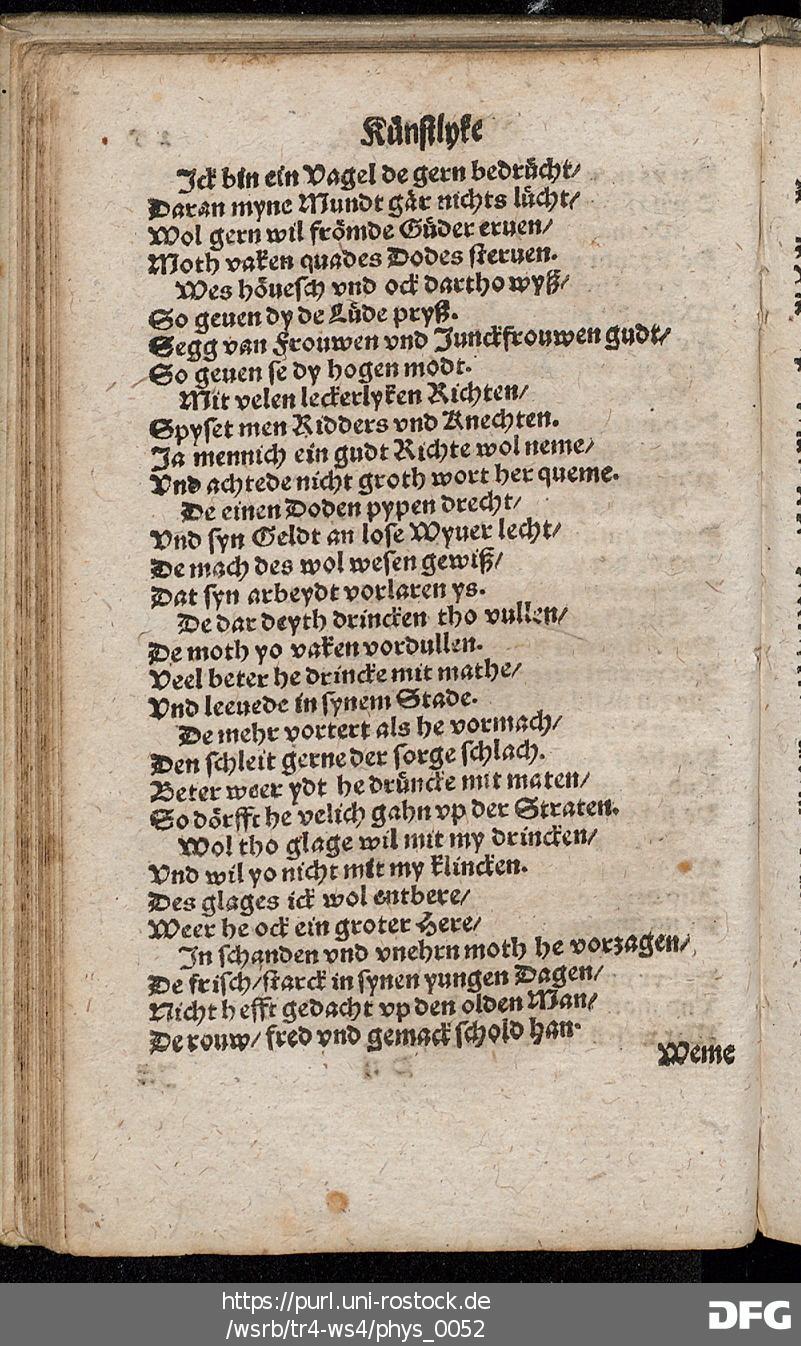 Künstlyke
Ick bin ein Vagel de gern bedrücht/
Daran myne Mundt gär nichts lücht/
Wol gern wil frömde Güder eruen/
Moth vaken quades Dodes steruen.
Wes höuesch vnd ock dartho wyß/
So geuen dy de Lüde pryß.
Segg van Frouwen vnd Junckfrouwen gudt/
So geuen se dy hogen modt.
Mit velen leckerlyken Richten/
Spyset men Ridders vnd Knechten.
Ja mennich ein gudt Richte wol neme/
Vnd achtede nicht groth wort her queme.
De einen Doden pypen drecht/
Vnd syn Geldt an lose Wyuer lecht/
De mach des wol wesen gewiß/
Dat syn arbeydt vorlaren ys.
De dar deyth drincken tho vullen/
De moth yo vaken vordullen.
Veel beter he drincke mit mathe/
Vnd leeuede in synem Stade.
De mehr vortert als he vormach/
Den schleit gerne der sorge schlach.
Beter weer ydt he drüncke mit maten/
So dörfft he velich gahn vp der Straten.
Wol tho glage wil mit my drincken/
Vnd wil yo nicht mit my klincken.
Des glages ick wol entbere/
Weer he ock ein groter Here/
In schanden vnd vnehrn moth he vorzagen/
De frisch/starck in synen yungen Dagen/
Nicht hefft gedacht vp den olden Man/
De rouw/ fred vnd gemack schold han.
Weme
https://purl.uni-rostock.de
/wsrb/tr4-ws4/phys_0052
DFG